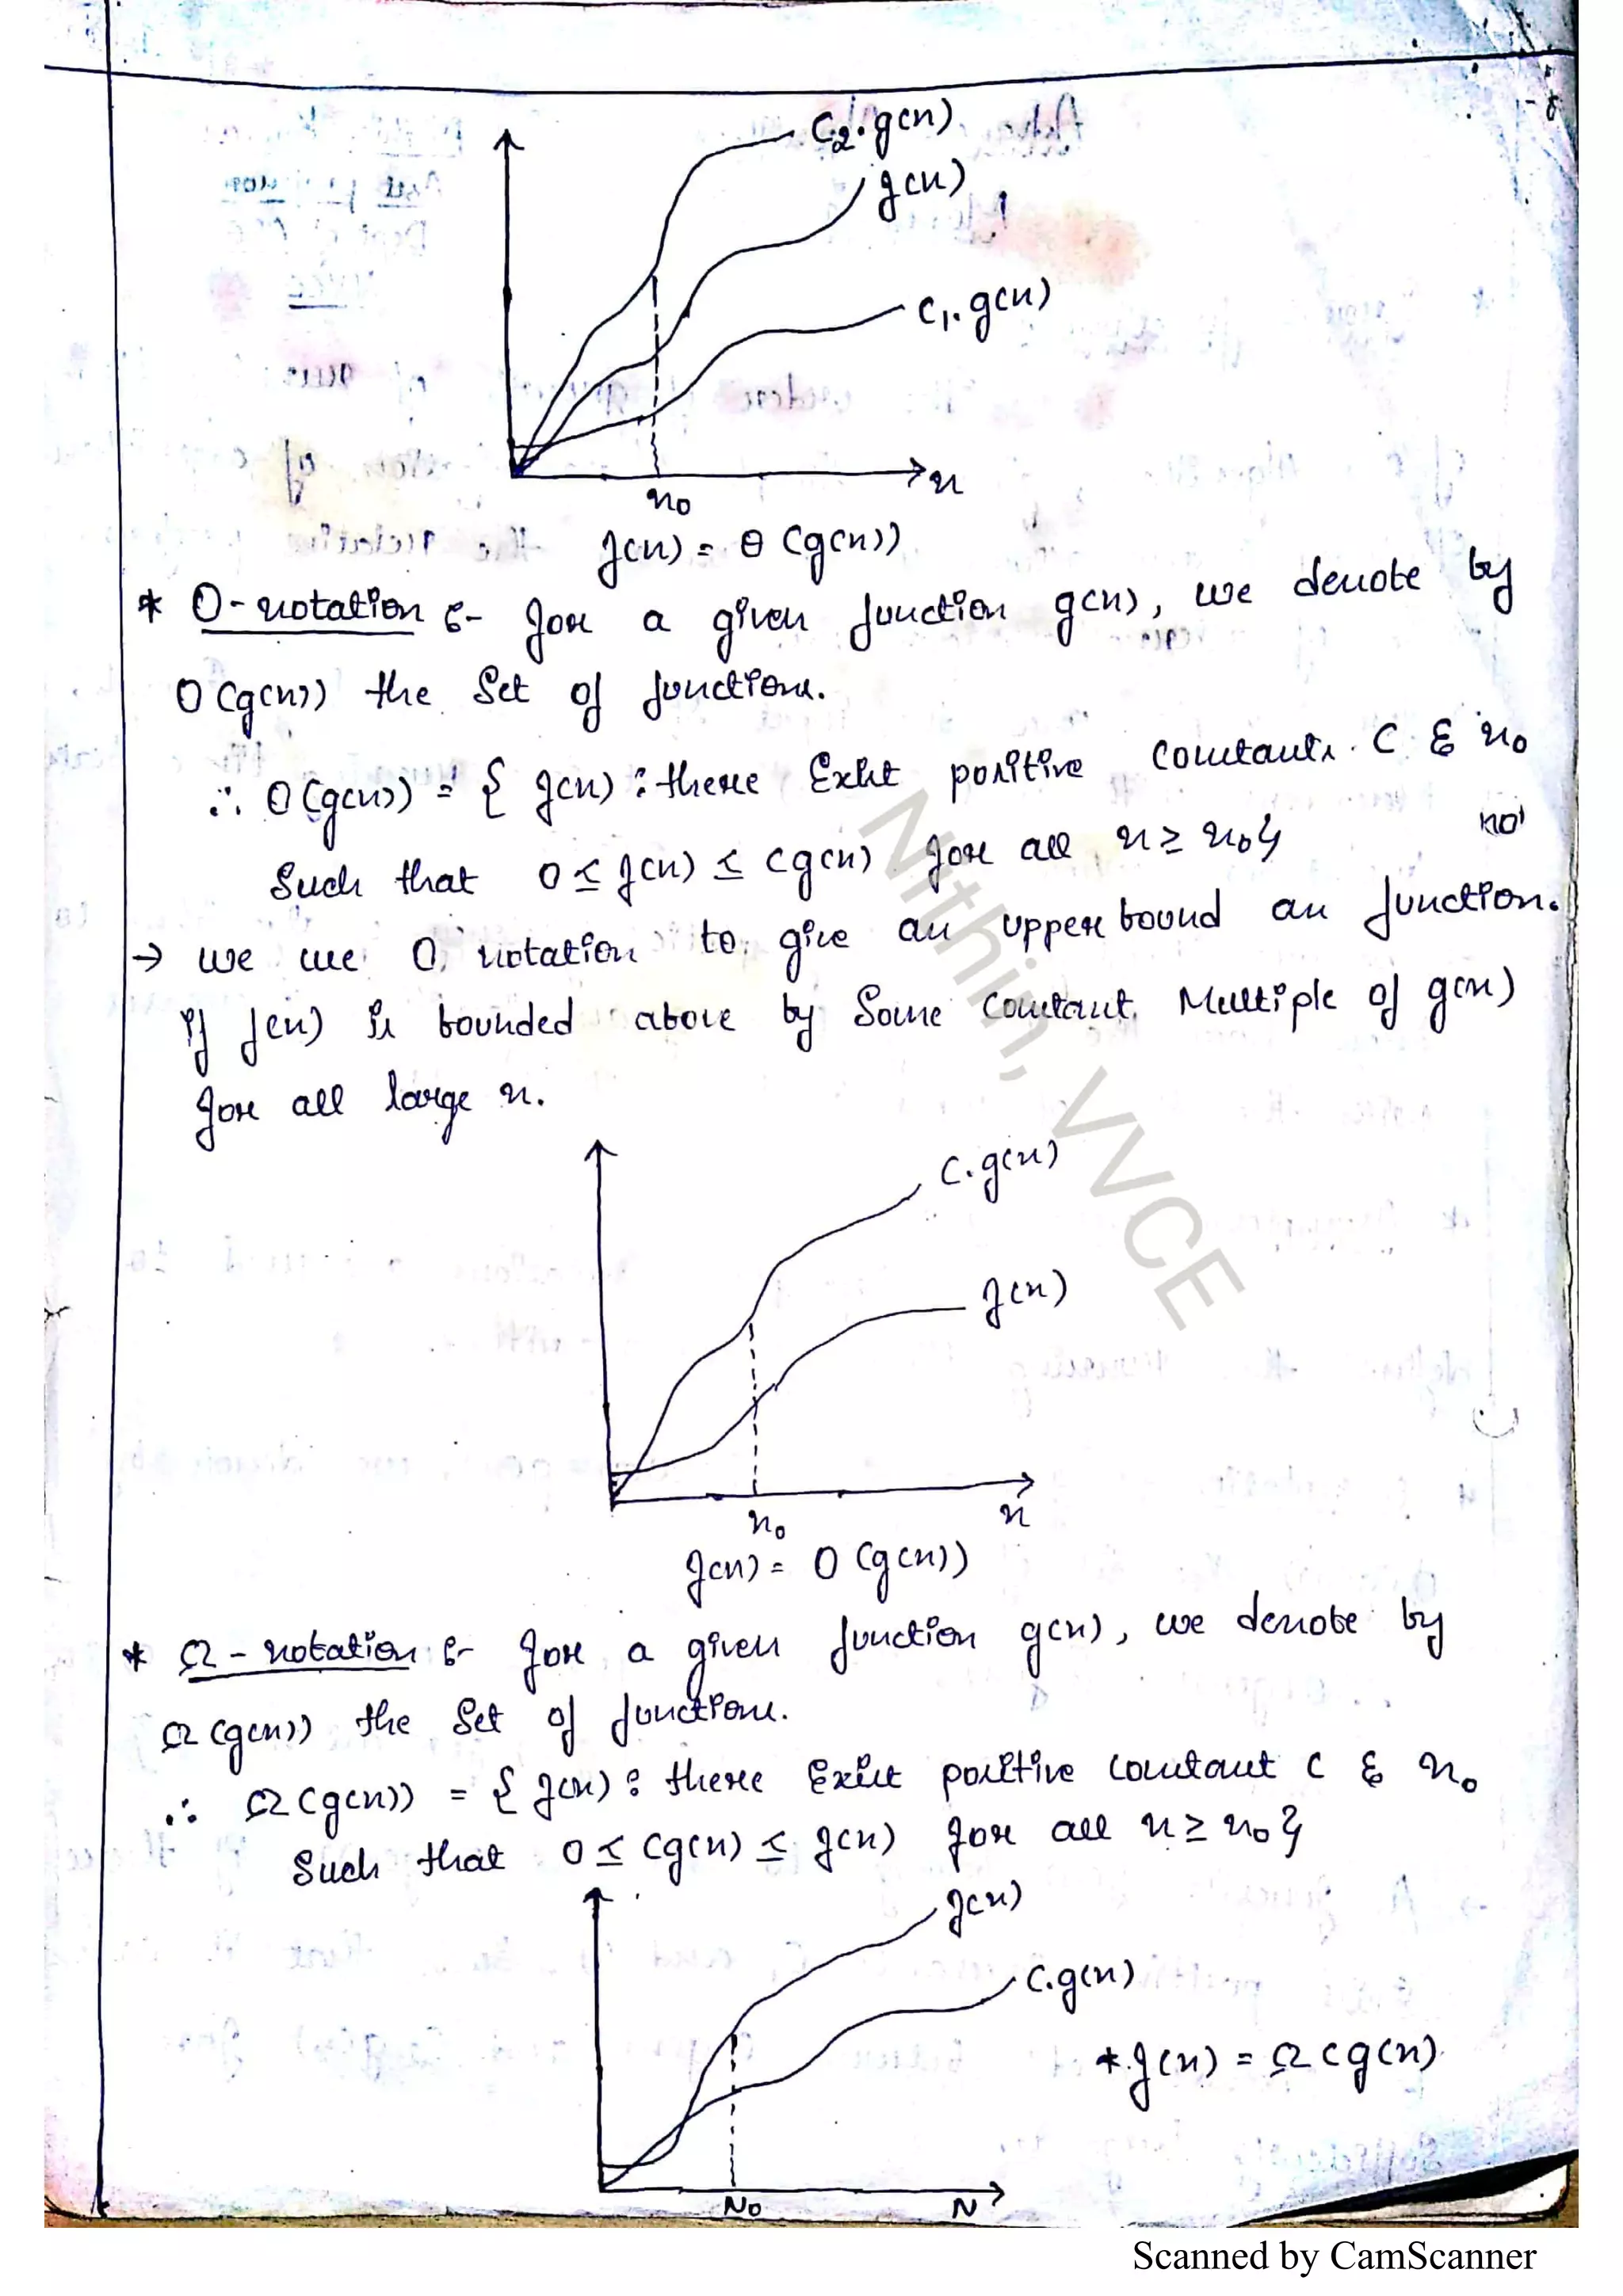 C2.g(n)
f(n)
C1.g(n)
n
n0
f(n) = θ (g(n))
* O-notation :- for a given function g(n), we denote by
O(g(n)) the set of functions.
∴ O(g(n)) = { f(n) : there Exist positive constants C & n0
Such that 0 ≤ f(n) ≤ cg(n) for all n ≥ n0}
no
→ we use O notation to give an upper bound an function.
If f(n) is bounded above by Some Constant Multiple of g(n)
for all large n.
C.g(n)
f(n)
n0
n
f(n) = O (g(n))
* Ω - notation :- for a given function g(n), we denote by
Ω(g(n)) the set of functions.
∴ Ω(g(n)) = { f(n) : there Exist positive constant C & n0
Such that 0 ≤ cg(n) ≤ f(n) for all n ≥ n0}
f(n)
C.g(n)
* f(n) = Ω(g(n)
N0
N
Nithin, VVCE
Scanned by CamScanner